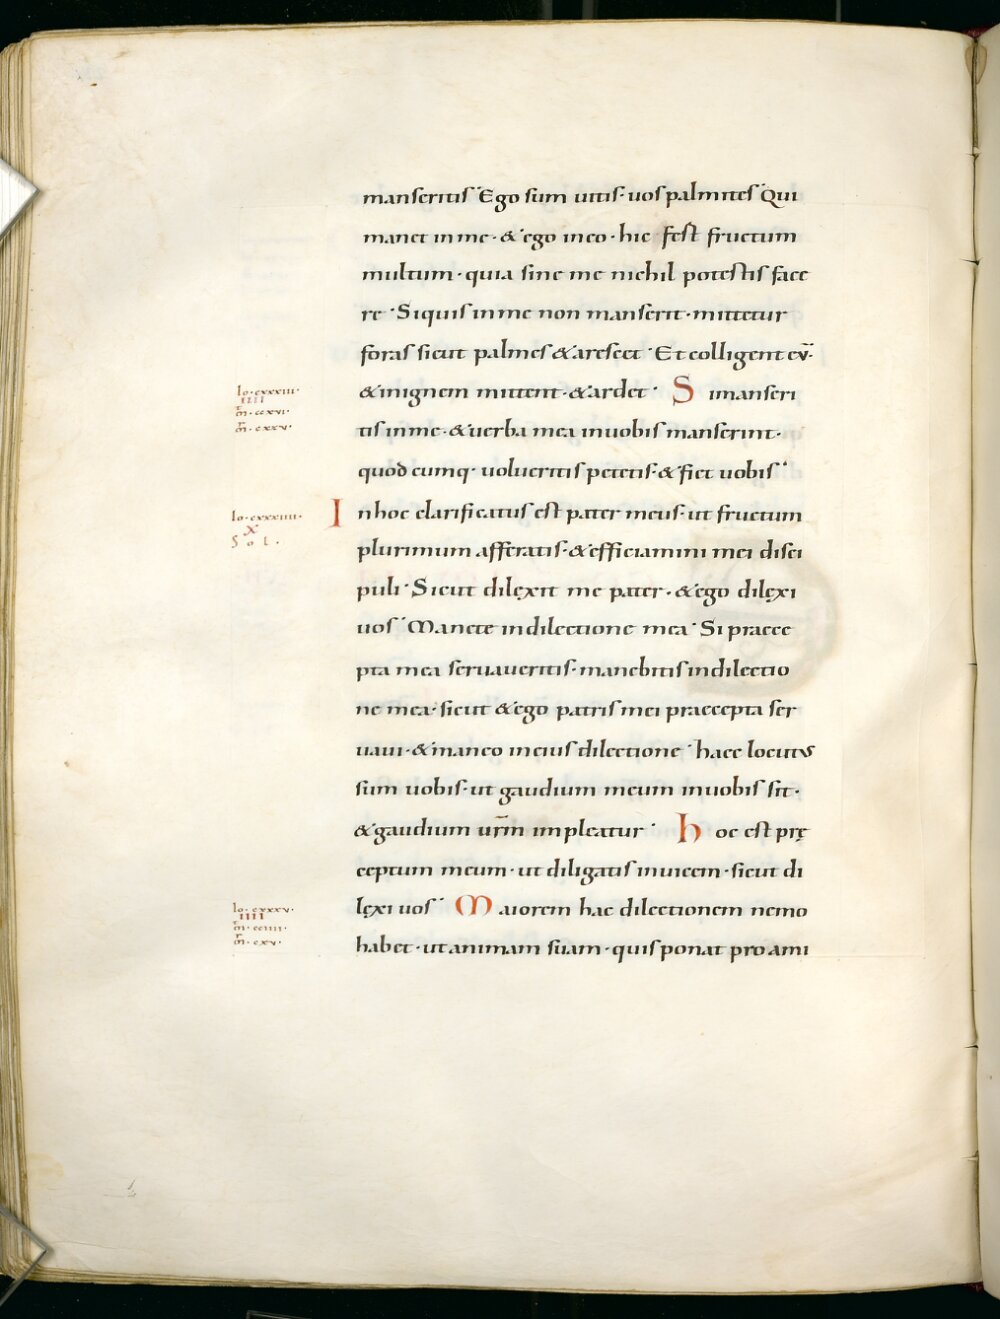 manseritis · Ego sum uitis · uos palmites Qui
manet in me · & ego in eo · hic fest fructum
multum · quia sine me nichil potestis face
re · Siquis in me non manserit · mittetur
foras sicut palmes & arescet · Et colligent eū ·
& in ignem mittent · & ardet · Si manseri
Io · cxxxiii ·
IIII
m̄ · ccxvi ·
m̄ · cxxv ·
tis in me · & uerba mea in uobis manserint ·
quod cumq · uolueritis petetis · & fiet uobis ·
Io · cxxxiiii ·
X
Sol ·
In hoc clarificatus est pater meus · ut fructum
plurimum afferatis · & efficiamini mei disci
puli · Sicut dilęxit me pater · & ego dilęxi
uos · Manete in dilectione mea · Si praece
pta mea seruaueritis · manebitis in dilectio
ne mea · sicut & ego patris mei praecepta ser
uaui · & maneo in eius dilectione · haec locutus
sum uobis · ut gaudium meum in uobis sit ·
& gaudium ur̄m impleatur · hoc est prę
ceptum meum · ut diligatis inuicem · sicut di
Io · cxxxv ·
IIII
m̄ · cciiii ·
m̄ · cxv ·
lęxi uos · Maiorem hac dilectionem nemo
habet · ut animam suam · quis ponat pro ami